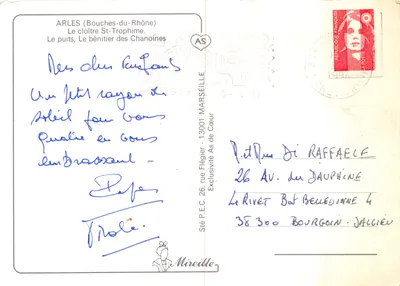 ARLES (Bouches-du-Rhône)
Le cloître St-Trophime,
Le puits, Le bénitier des Chanoines
AS
Mes chers Enfants
Un ptit rayon de
soleil pour vous
quatre en vous
embrassant -
Sté P.E.C. 26, rue Flégier - 13001 MARSEILLE
Exclusivité As de Cœur
Mireille
Mr et Mme Di RAFFAELE
26 Av. du DAUPHINE
LE RIVET Bat BELLEDINNE 4
38 300 BOURGOIN-JALLIEU